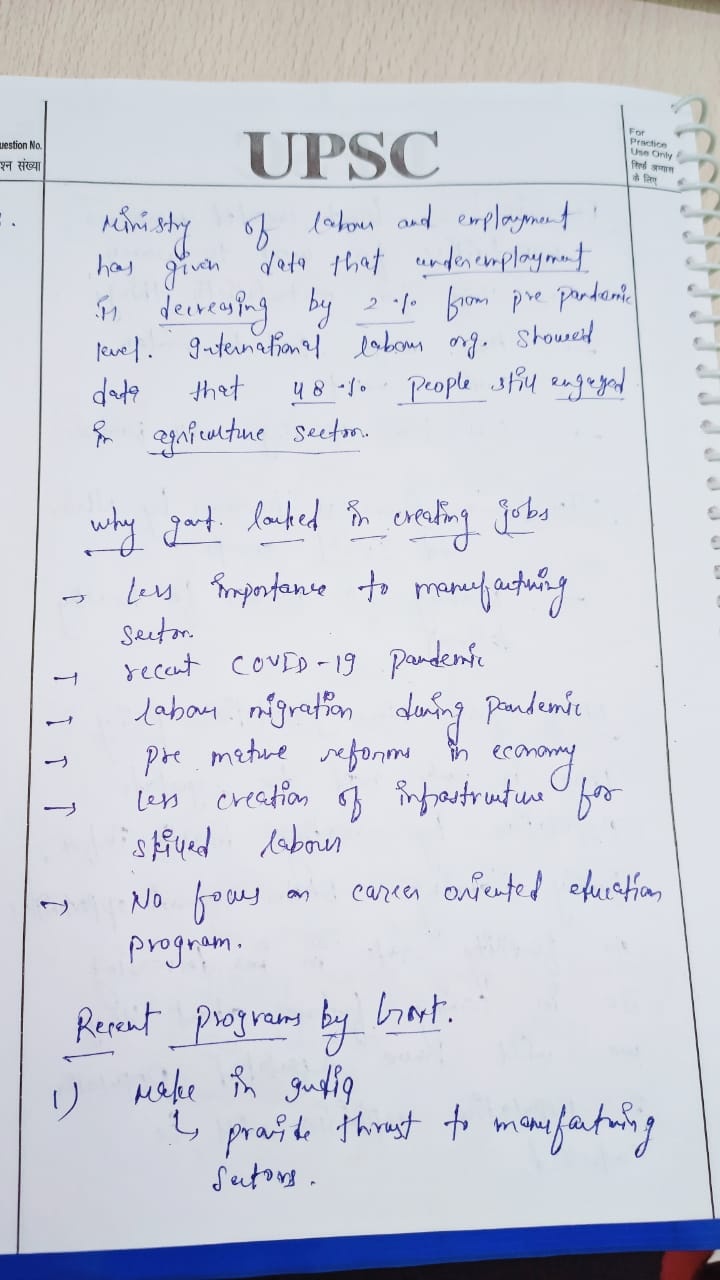 uestion No.
श्न संख्या
UPSC
For
Practice
Use Only
सिर्फ अभ्यास
के लिए
Ministry of labour and employment
has given data that underemployment
is decreasing by 2% from pre pandemic
level. International labour org. showed
data that 48% people still engaged
in agriculture sector.
why govt. lacked in creating jobs
→ Less importance to manufacturing
sector.
→ recent COVID-19 pandemic
→ labour migration during pandemic
→ pre mature reforms in economy
→ Less creation of infrastructure for
skilled labour
→ No focus on career oriented education
program.
Recent programs by Govt.
1) Make in India
↳ provide thrust to manufacturing
sectors.